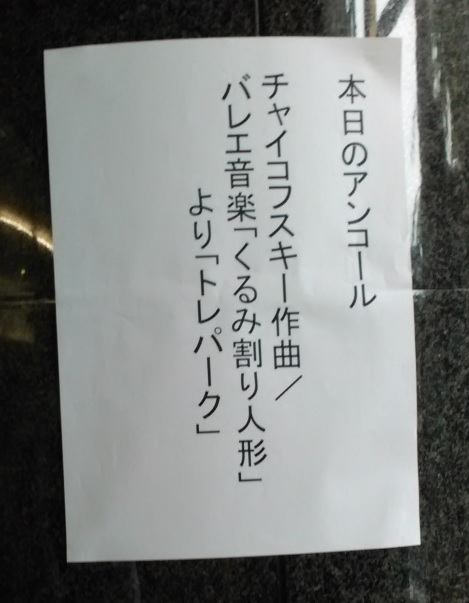 本日のアンコール
チャイコフスキー作曲／
バレエ音楽「くるみ割り人形」
より「トレパーク」